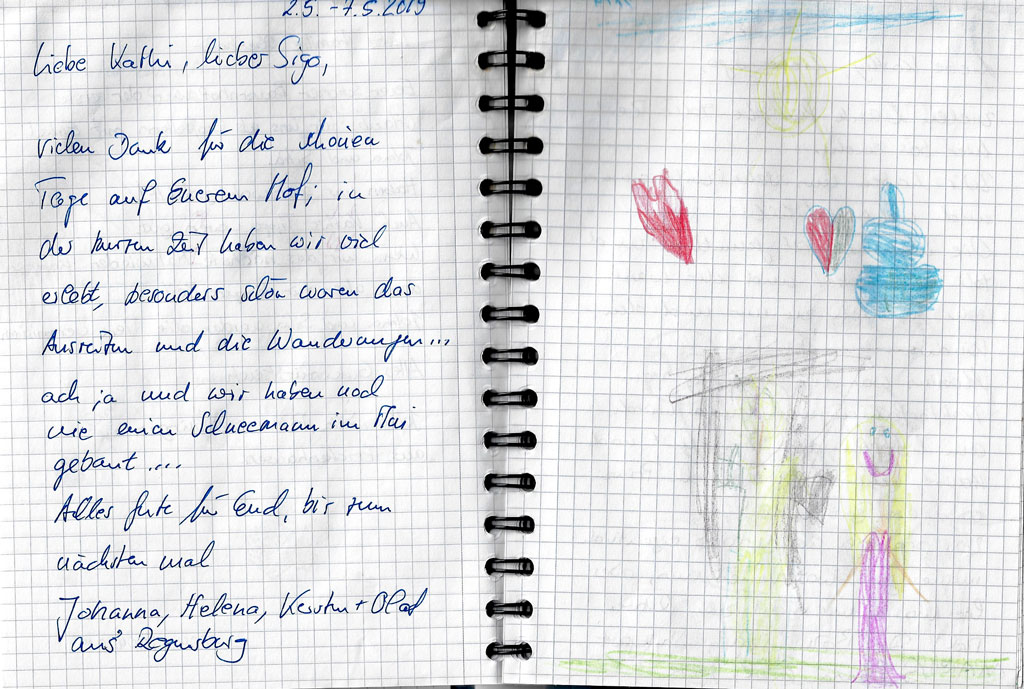 2.5. - 7.5.2019
Liebe Kathi, lieber Sigo,
vielen Dank für die schönen
Tage auf Euerem Hof; in
der kurzen Zeit haben wir viel
erlebt, besonders schön waren das
Ausreiten und die Wanderungen...
ach ja und wir haben noch
nie einen Schneemann im Mai
gebaut....
Alles Gute für Euch, bis zum
nächsten mal
Johanna, Helena, Kerstin + Olaf
aus Regensburg